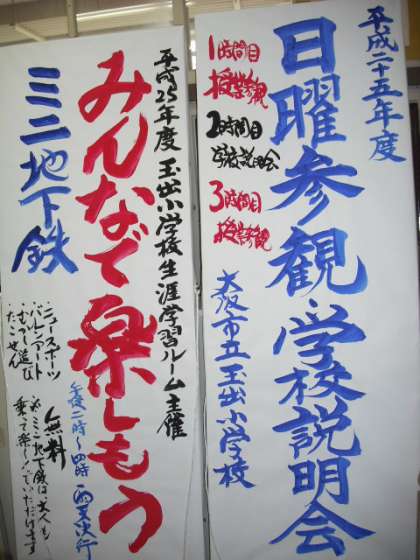 平成二十五年度
日曜参観・学校説明会
1時間目
授業参観
2時間目
学校説明会
3時間目
授業参観
大阪市立玉出小学校
平成25年度 玉出小学校生涯学習ルーム主催
みんなで楽しもう
午後二時〜四時 雨天決行
ミニ地下鉄
・ニュースポーツ
・バルーンアート
・むかし遊び
・たこせん
無料
※ミニ地下鉄は大人も
乗って楽しんでいただけます